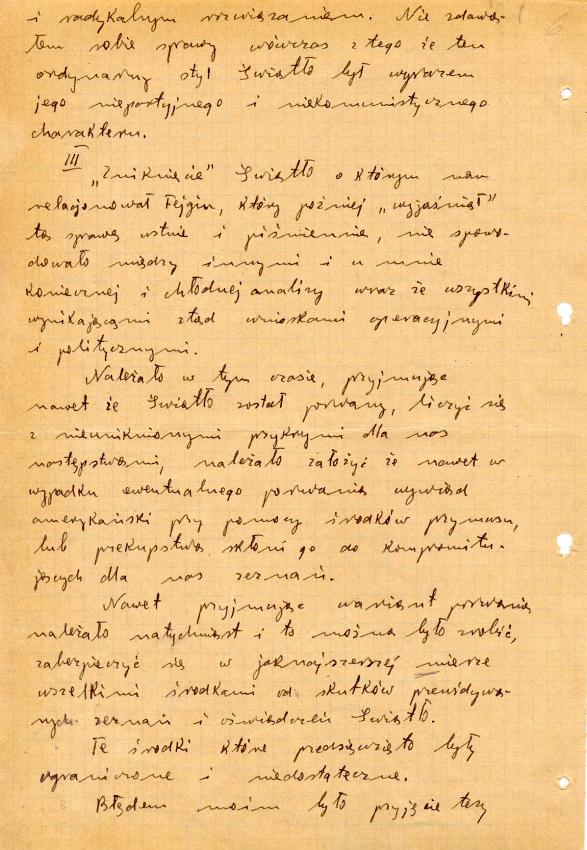 i radykalnym rozwiązaniem. Nie zdawa-
łem sobie sprawy wówczas z tego że ten
ordynarny styl Światło był wyrazem
jego niepartyjnego i niekomunistycznego
charakteru.
III
„Zniknięcie" Światło o którym nam
relacjonował Fejgin, który później „wyjaśniał"
tą sprawę ustnie i piśmiennie, nie spowo-
dowało między innymi i u mnie
koniecznej i chłodnej analizy wraz ze wszystkimi
wynikającymi stąd wnioskami operacyjnymi
i politycznymi.
Należało w tym czasie, przyjmując
nawet że Światło został porwany, liczyć się
z nieuniknionymi przykrymi dla nas
następstwami, należało założyć że nawet w
wypadku ewentualnego porwania wywiad
amerykański przy pomocy środków przymusu,
lub przekupstwa skłoni go do kompromitu-
jących dla nas zeznań.
Nawet przyjmując wariant porwania
należało natychmiast i to można było zrobić,
zabezpieczyć się w jaknajszerszej mierze
wszelkimi środkami od skutków przewidywa-
nych zeznań i oświadczeń Światło.
Te środki które przedsięwzięto były
ograniczone i niedostateczne.
Błędem moim było przyjęcie tezy